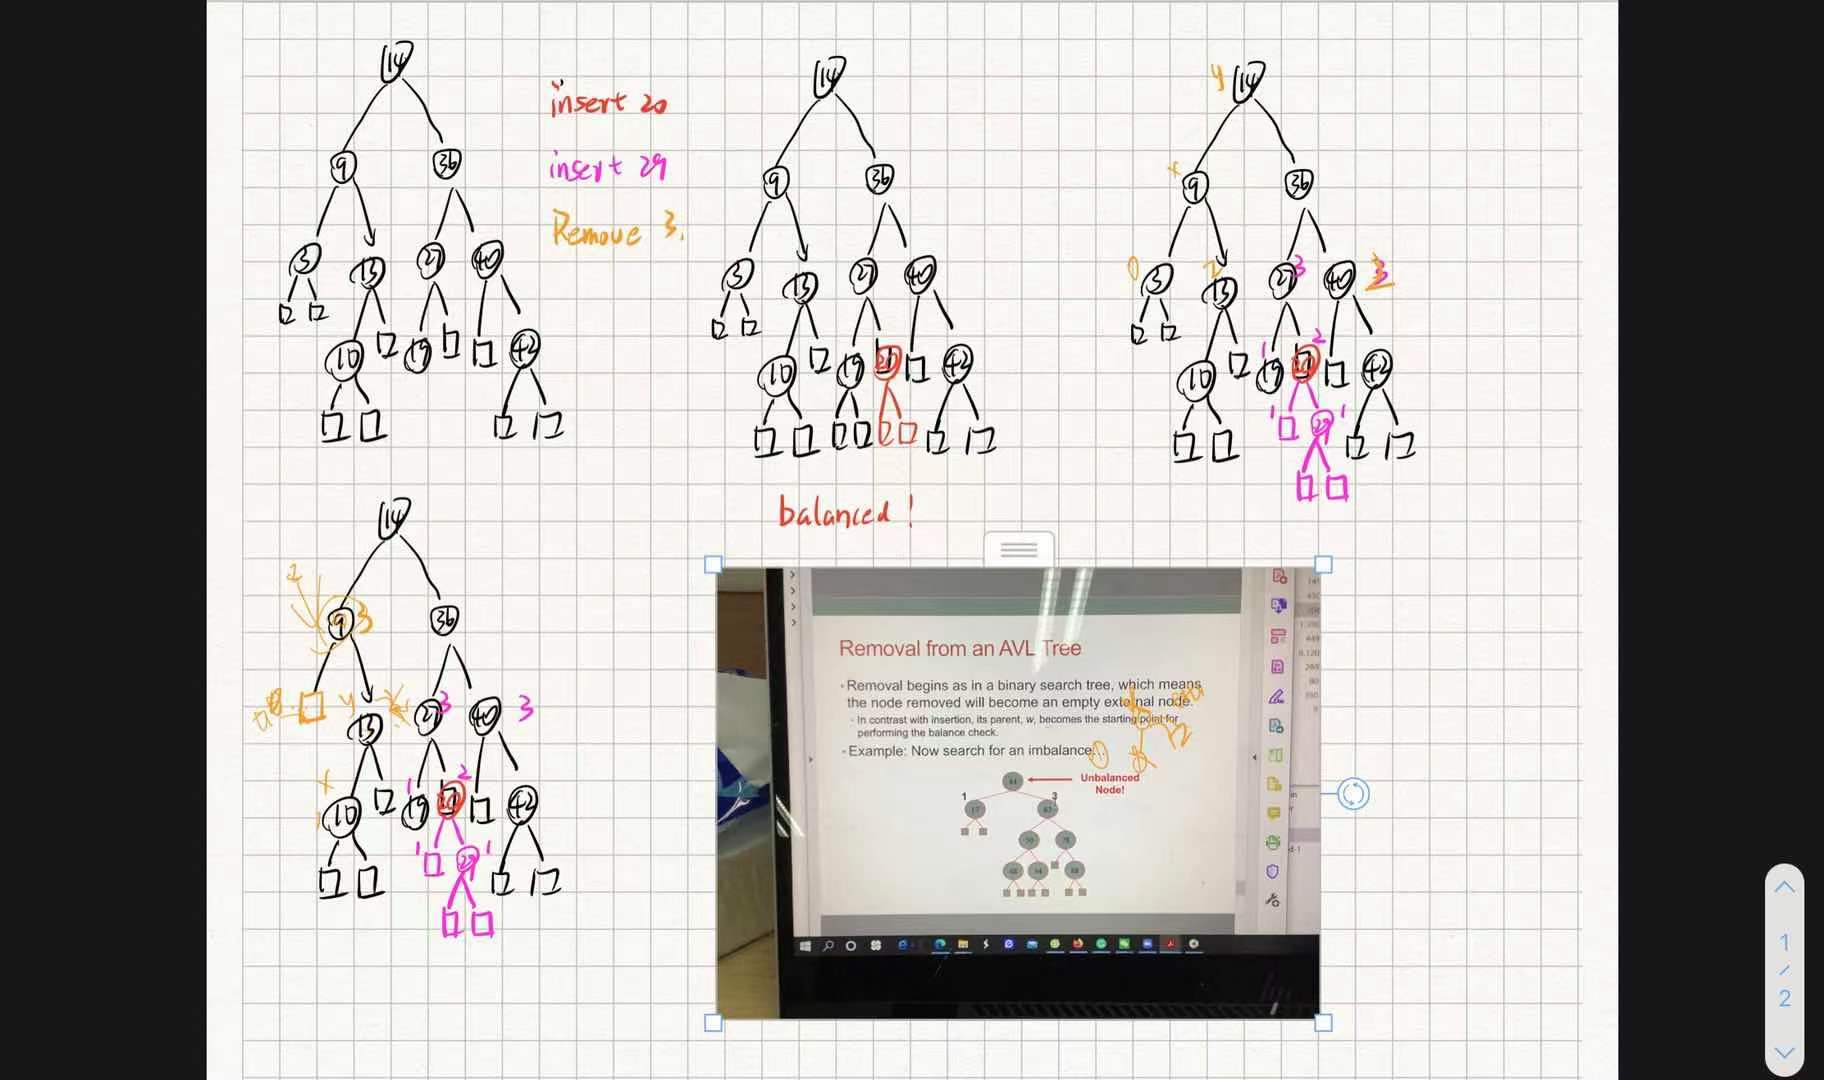 14
9
36
3
13
27
40
10
19
42
insert 20
insert 29
Remove 3.
14
9
36
3
13
27
40
10
19
20
42
balanced !
y
14
x
9
36
0
3
2
13
27
3
40
3
10
1
19
20
2
42
1
29
1
14
2
9
3
36
y
13
27
3
40
3
x
10
1
19
20
2
42
1
29
1
Removal from an AVL Tree
Removal begins as in a binary search tree, which means
the node removed will become an empty external node.
In contrast with insertion, its parent, w, becomes the starting point for
performing the balance check.
Example: Now search for an imbalance...
44
Unbalanced
Node!
1
3
17
62
50
78
48
54
88
hp
1
/
2